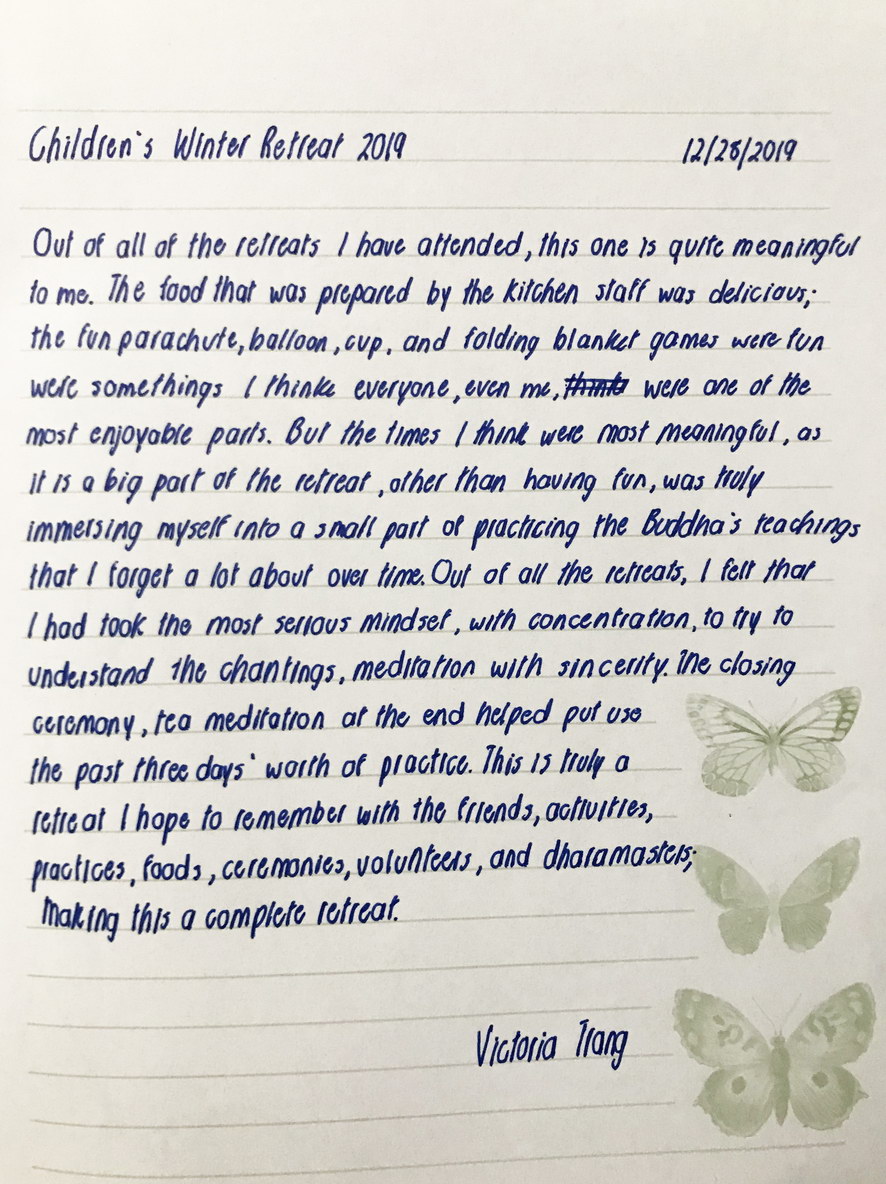 Children's Winter Retreat 2019 12/28/2019
Out of all of the retreats I have attended, this one is quite meaningful
to me. The food that was prepared by the kitchen staff was delicious;
the fun parachute, balloon, cup, and folding blanket games were fun
were somethings I thinke everyone, even me, thinks were one of the
most enjoyable parts. But the times I think were most meaningful, as
it is a big part of the retreat, other than having fun, was truly
immersing myself into a small part of practicing the Buddha's teachings
that I forget a lot about over time. Out of all the retreats, I felt that
I had took the most serious mindset, with concentration, to try to
understand the chantings, meditation with sincerity. The closing
ceremony, tea meditation at the end helped put use
the past three days' worth of practice. This is truly a
retreat I hope to remember with the friends, activities,
practices, foods, ceremonies, volunteers, and dharamasters;
making this a complete retreat.
Victoria Trang